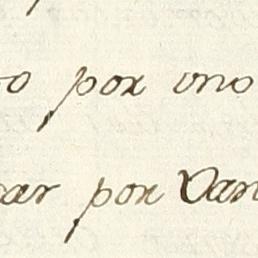 o por uno
ar por Var